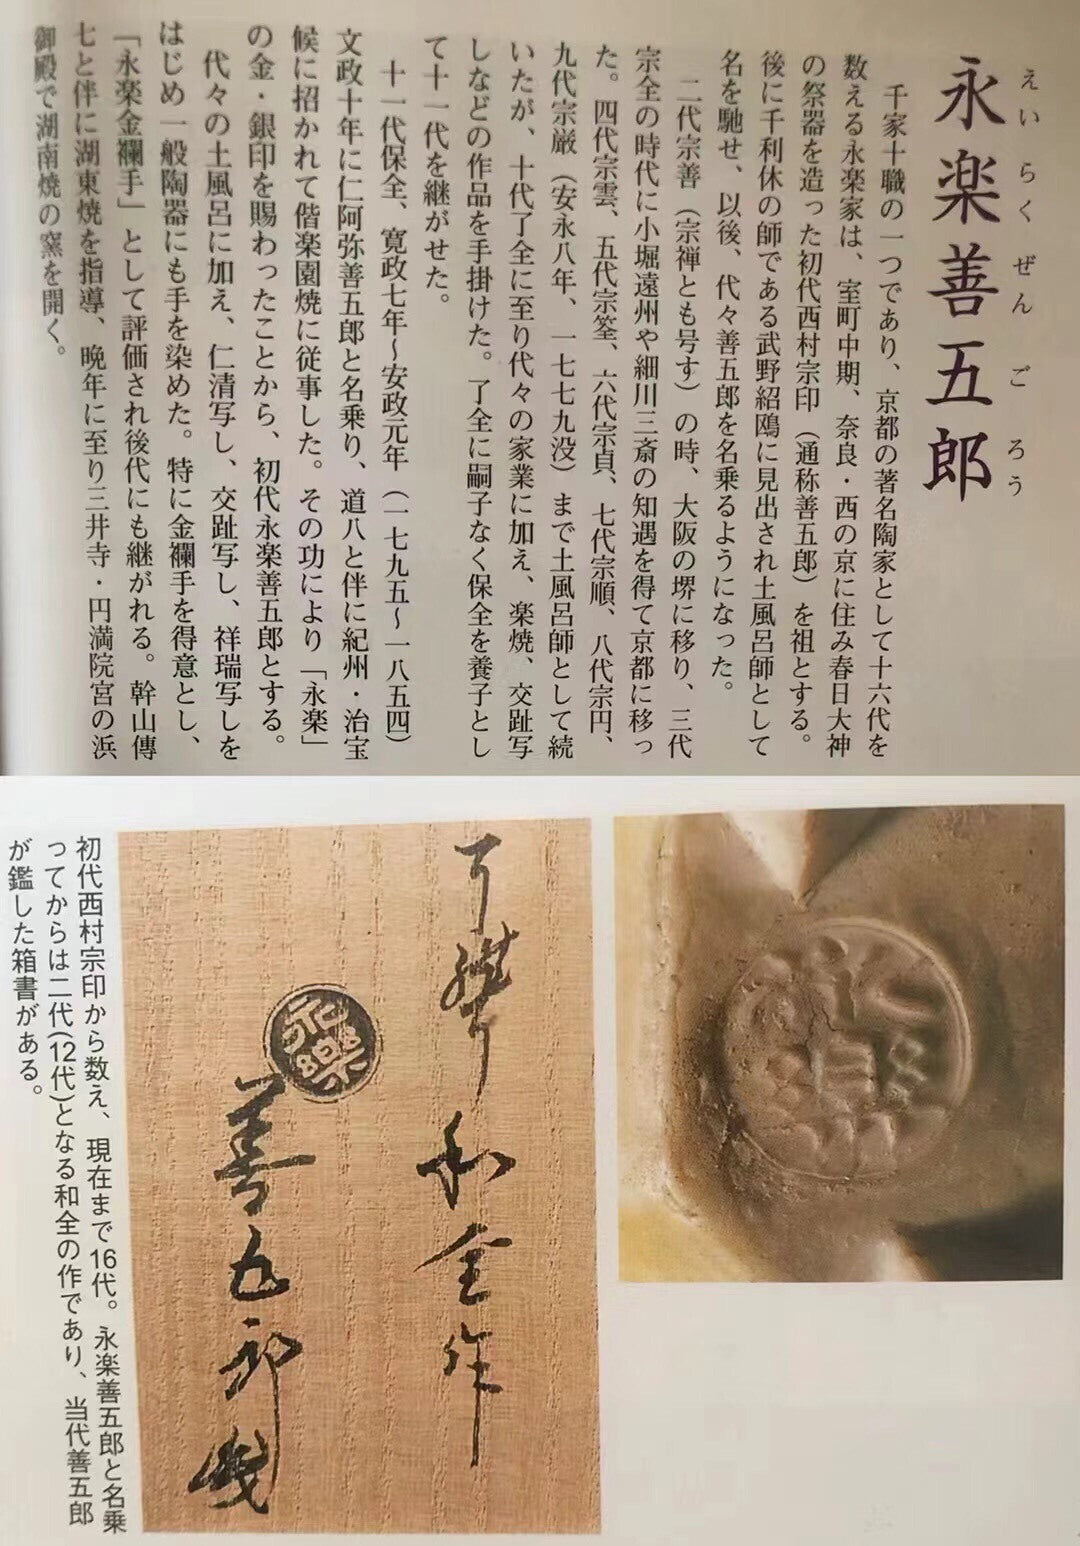 永楽善五郎
えいらくぜんごろう
千家十職の一つであり、京都の著名陶家として十六代を
数える永楽家は、室町中期、奈良・西の京に住み春日大神
の祭器を造った初代西村宗印（通称善五郎）を祖とする。
後に千利休の師である武野紹鴎に見出され土風呂師として
名を馳せ、以後、代々善五郎を名乗るようになった。
二代宗善（宗禅とも号す）の時、大阪の堺に移り、三代
宗全の時代に小堀遠州や細川三斎の知遇を得て京都に移っ
た。四代宗雲、五代宗筌、六代宗貞、七代宗順、八代宗円、
九代宗厳（安永八年、一七七九没）まで土風呂師として続
いたが、十代了全に至り代々の家業に加え、楽焼、交趾写
しなどの作品を手掛けた。了全に嗣子なく保全を養子とし
て十一代を継がせた。
十一代保全、寛政七年〜安政元年（一七九五〜一八五四）
文政十年に仁阿弥善五郎と名乗り、道八と伴に紀州・治宝
候に招かれて偕楽園焼に従事した。その功により「永楽」
の金・銀印を賜わったことから、初代永楽善五郎とする。
代々の土風呂に加え、仁清写し、交趾写し、祥瑞写しを
はじめ一般陶器にも手を染めた。特に金襴手を得意とし、
「永楽金襴手」として評価され後代にも継がれる。幹山傳
七と伴に湖東焼を指導、晩年に至り三井寺・円満院宮の浜
御殿で湖南焼の窯を開く。
永樂
和全作
永樂
善五郎
初代西村宗印から数え、現在まで16代。永楽善五郎と名乗
ってからは二代(12代)となる和全の作であり、当代善五郎
が鑑した箱書がある。